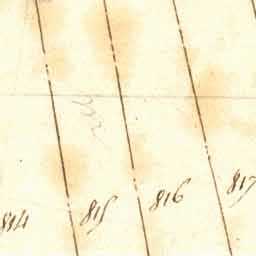 814
815
816
817